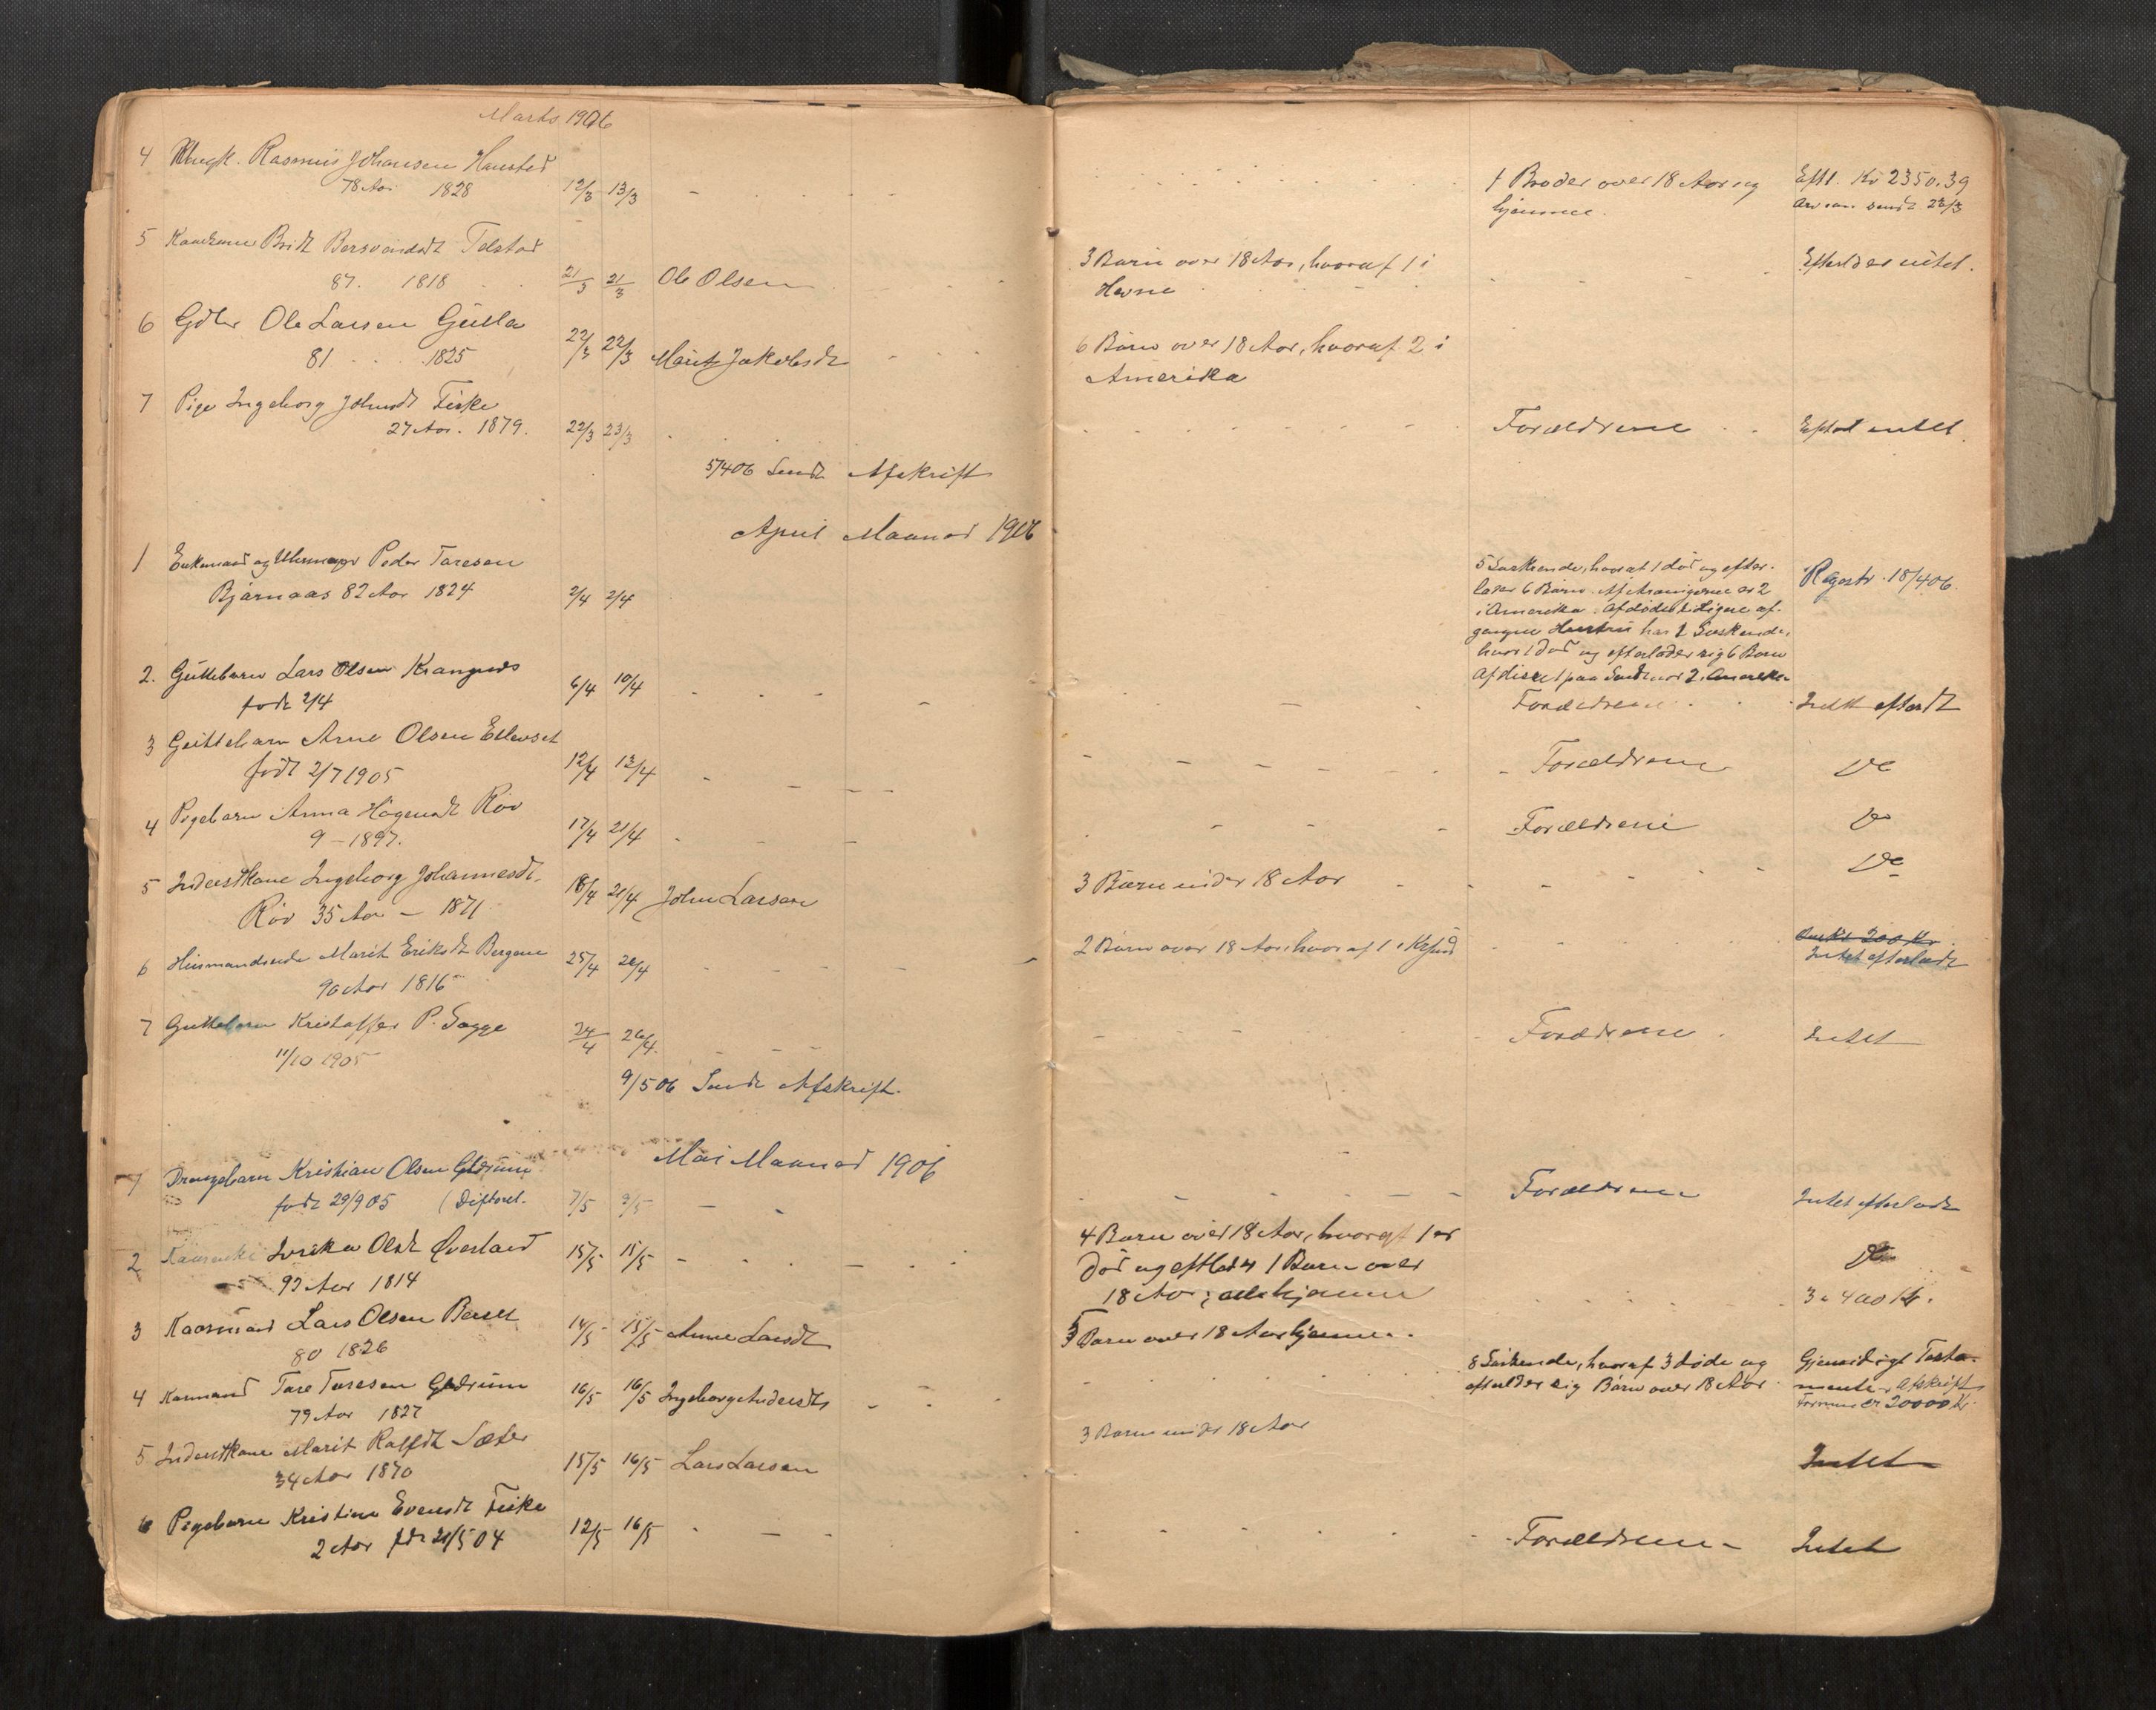 Marts 1906
4 Ungk. Rasmus Johansen Hanstad
78 Aar 1828 12/3 13/3 - 1 Broder over 18 Aar og Eftl. Kr 2350.39
hjemme. sendt 23/3
5 Kaarkone Brit Bersvendsdt Tølstad
87. 1818 21/3 21/3 Ole Olsen 3 Børn over 18 Aar, hvoraf 1 i Efterlod intet.
Hevne
6 Gdbr Ole Larsen Gulla
81 1825 22/3 22/3 Marit Jakobsdt 6 Børn over 18 Aar, hvoraf 2 i
Amerika
7 Pige Ingeborg Johnsdt Fiske
27 Aar. 1879. 22/3 23/3 Forældrene Eftlod intet.
5/4 06 Sendt Afskrift
April Maaned 1906
1 Enkemand og Uhrmager Peder Taresen
Bjørnaas 82 Aar 1824 2/4 2/4
5 Søskende, hvoraf 1 død og efter-
lader 6 Børn. Af Arvingerne er 2 Registr. 18/4 06.
i Amerika. Afdødes tidligere af-
gangne Hustru har 2 Søskende,
hvor 1 død og efterlader sig 6 Børn
Af disse 1 paa 2 i Amerika
2. Guttebarn Lars Olsen
født 2/4 6/4 10/4 Forældrene Intet efterladt
3 Guttebarn Arne Olsen Ellevset
født 2/7 1905 12/4 13/4 Forældrene Do
4 Pigebarn Anna Høgensdt Røv
9 - 1897. 17/4 21/4 Forældrene Do
5 Inderstkone Ingeborg Johannesdt.
Røv 35 Aar - 1871 18/4 21/4 John Larsen 3 Børn under 18 Aar Do
6 Husmandsenke Marit Eriksdt Bergem
90 Aar 1816 25/4 26/4 2 Børn over 18 Aar, hvoraf 1 i Krsund 200 Kr.
Intet efterladt
7 Guttebarn Kristoffer P. Sogge
11/10 1905 24/4 26/4. Forældrene Intet
9/5 06 Sendt Afskrift.
Mai Maaned 1906
1 Drengebarn Kristian Olsen Gldrum
født 29/9 05 (Difterit. 7/5 9/5 Forældrene Intet efterladt
2 Kaarenke Olsdt Øverland
93 Aar 1814 15/5 15/5
4 Børn over 18 Aar, hvoraf 1 er
død og eftlod 1 Barn over Do
18 Aar; alle hjemme
3 Kaarmand Lars Olsen Berset
80 1826 14/5 15/5 Anne Larsdt 5 Børn over 18 Aar hjemme. 3 a 400 Kr.
4 Karmand Tare Taresen Gldrum
79 Aar 1827 16/5 16/5 Ingeborg Andersdt
8 Søskende, hvoraf 3 døde og Gjensidigt Testa-
efterlder sig Børn over 18 Aar mente i Afskrift
Formue er 20000 Kr.
5 Inderstkone Marit Rolfsdt Sæter
34 Aar 1870 15/5 16/5 Lars Larsen 3 Børn under 18 Aar Intet
6 Pigebarn Kristine Evensdt Fiske
2 Aar fdt 21/5 04 12/5 16/5 Forældrene Intet